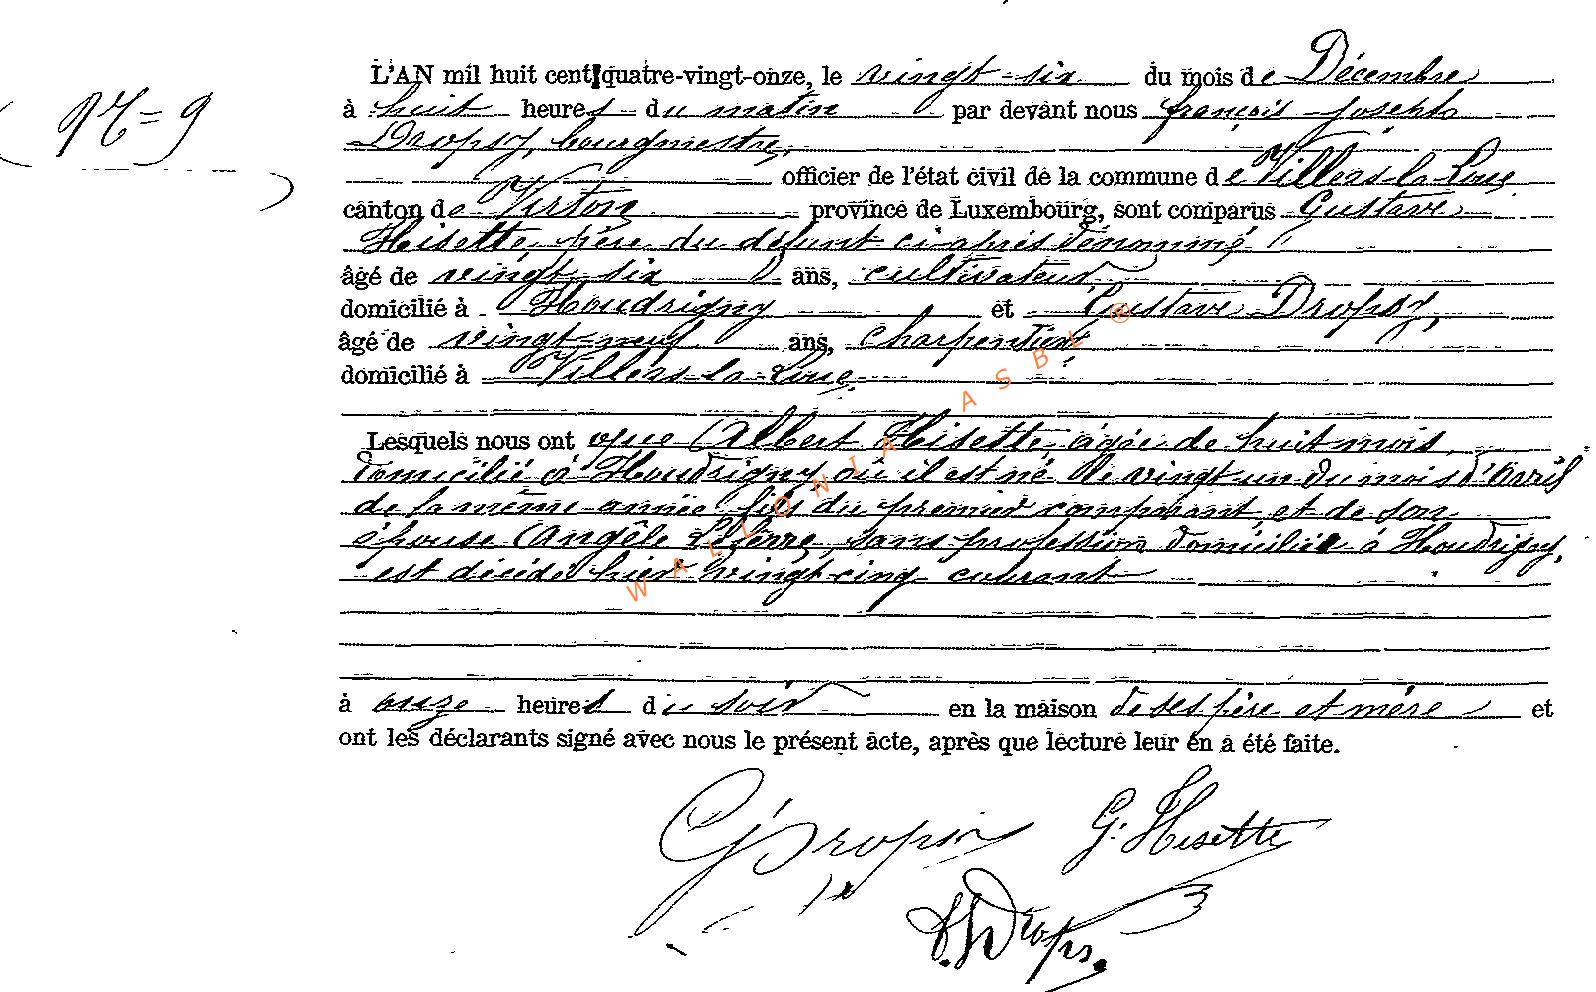 L'AN mil huit cent quatre-vingt-onze, le vingt-six du mois de Décembre
N=9
à huit heures du matin par devant nous françois Joseph
Dropsy, bourgmestre,
officier de l'état civil de la commune de Villers-la-Loue
canton de Virton province de Luxembourg, sont comparus Gustave
Hisette, père du défunt ci-après dénommé
âgé de vingt-six ans, cultivateur,
domicilié à Houdrigny et Gustave Dropsy,
âgé de vingt-neuf ans, charpentier
domicilié à Villers-la-Loue
Lesquels nous ont que Albert Hisette, âgée de huit mois,
domicilié à Houdrigny où il est né le vingt un du mois d'Avril
de la même année, fils du premier comparant, et de son
épouse Angèle Lefèvre, sans profession domiciliée à Houdrigny,
est décédé hier vingt-cinq courant
à onze heures du soir en la maison de ses père et mère et
ont les déclarants signé avec nous le présent acte, après que lecture leur en a été faite.
G Dropsy G. Hisette
F. J. Dropsy
WALLONIA ASBL ®